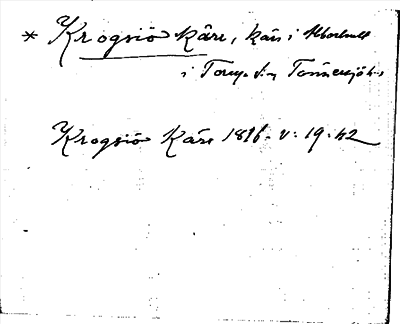 * Krogsiö kärr, kärr i
i Torup s:n Tönnersjö h.
Krogsiö Kärr 1816. v: 19. 42